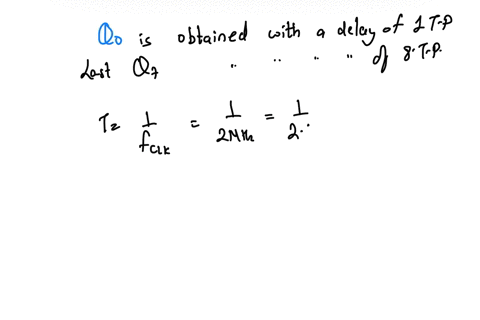 Q0 is obtained with a delay of 1 T.P
Last Q7 " " " " of 8 T.P.
T = 1/fCLK = 1/2MHz = 1/2.